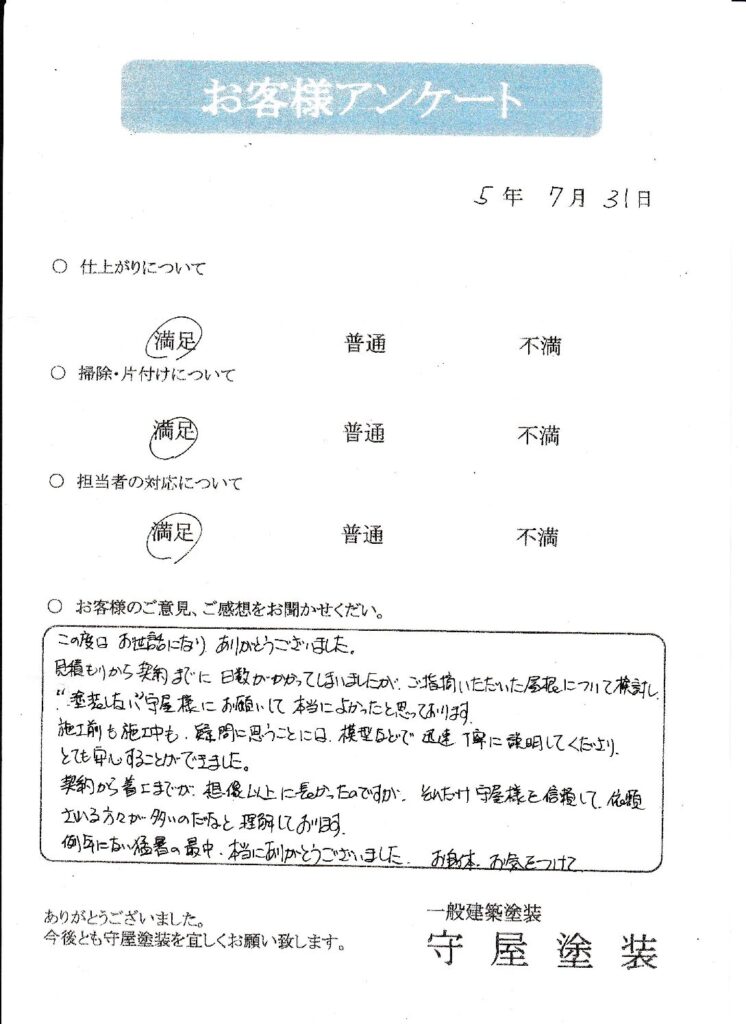 お客様アンケート
5年 7月 31日
○ 仕上がりについて
満足 普通 不満
○ 掃除・片付けについて
満足 普通 不満
○ 担当者の対応について
満足 普通 不満
○ お客様のご意見、ご感想をお聞かせくだい。
この度は お世話になり ありがとうございました。
見積もりから契約までに 日数がかかってしまいましたが、ご指摘いただいた屋根について検討し、
"塗装しない"守屋様に お願いして 本当によかったと思っております。
施工前も施工中も、疑問に思うことには、模型などで 迅速 丁寧に説明してくださり、
とても安心することができました。
契約から着工までが、想像以上に長かったのですが、それだけ守屋様を信頼して、依頼
されている方々が多いのだなと理解しております。
例年にない猛暑の最中、本当にありがとうございました。 お身体、お気をつけて
ありがとうございました。
今後とも守屋塗装を宜しくお願い致します。
一般建築塗装
守屋塗装